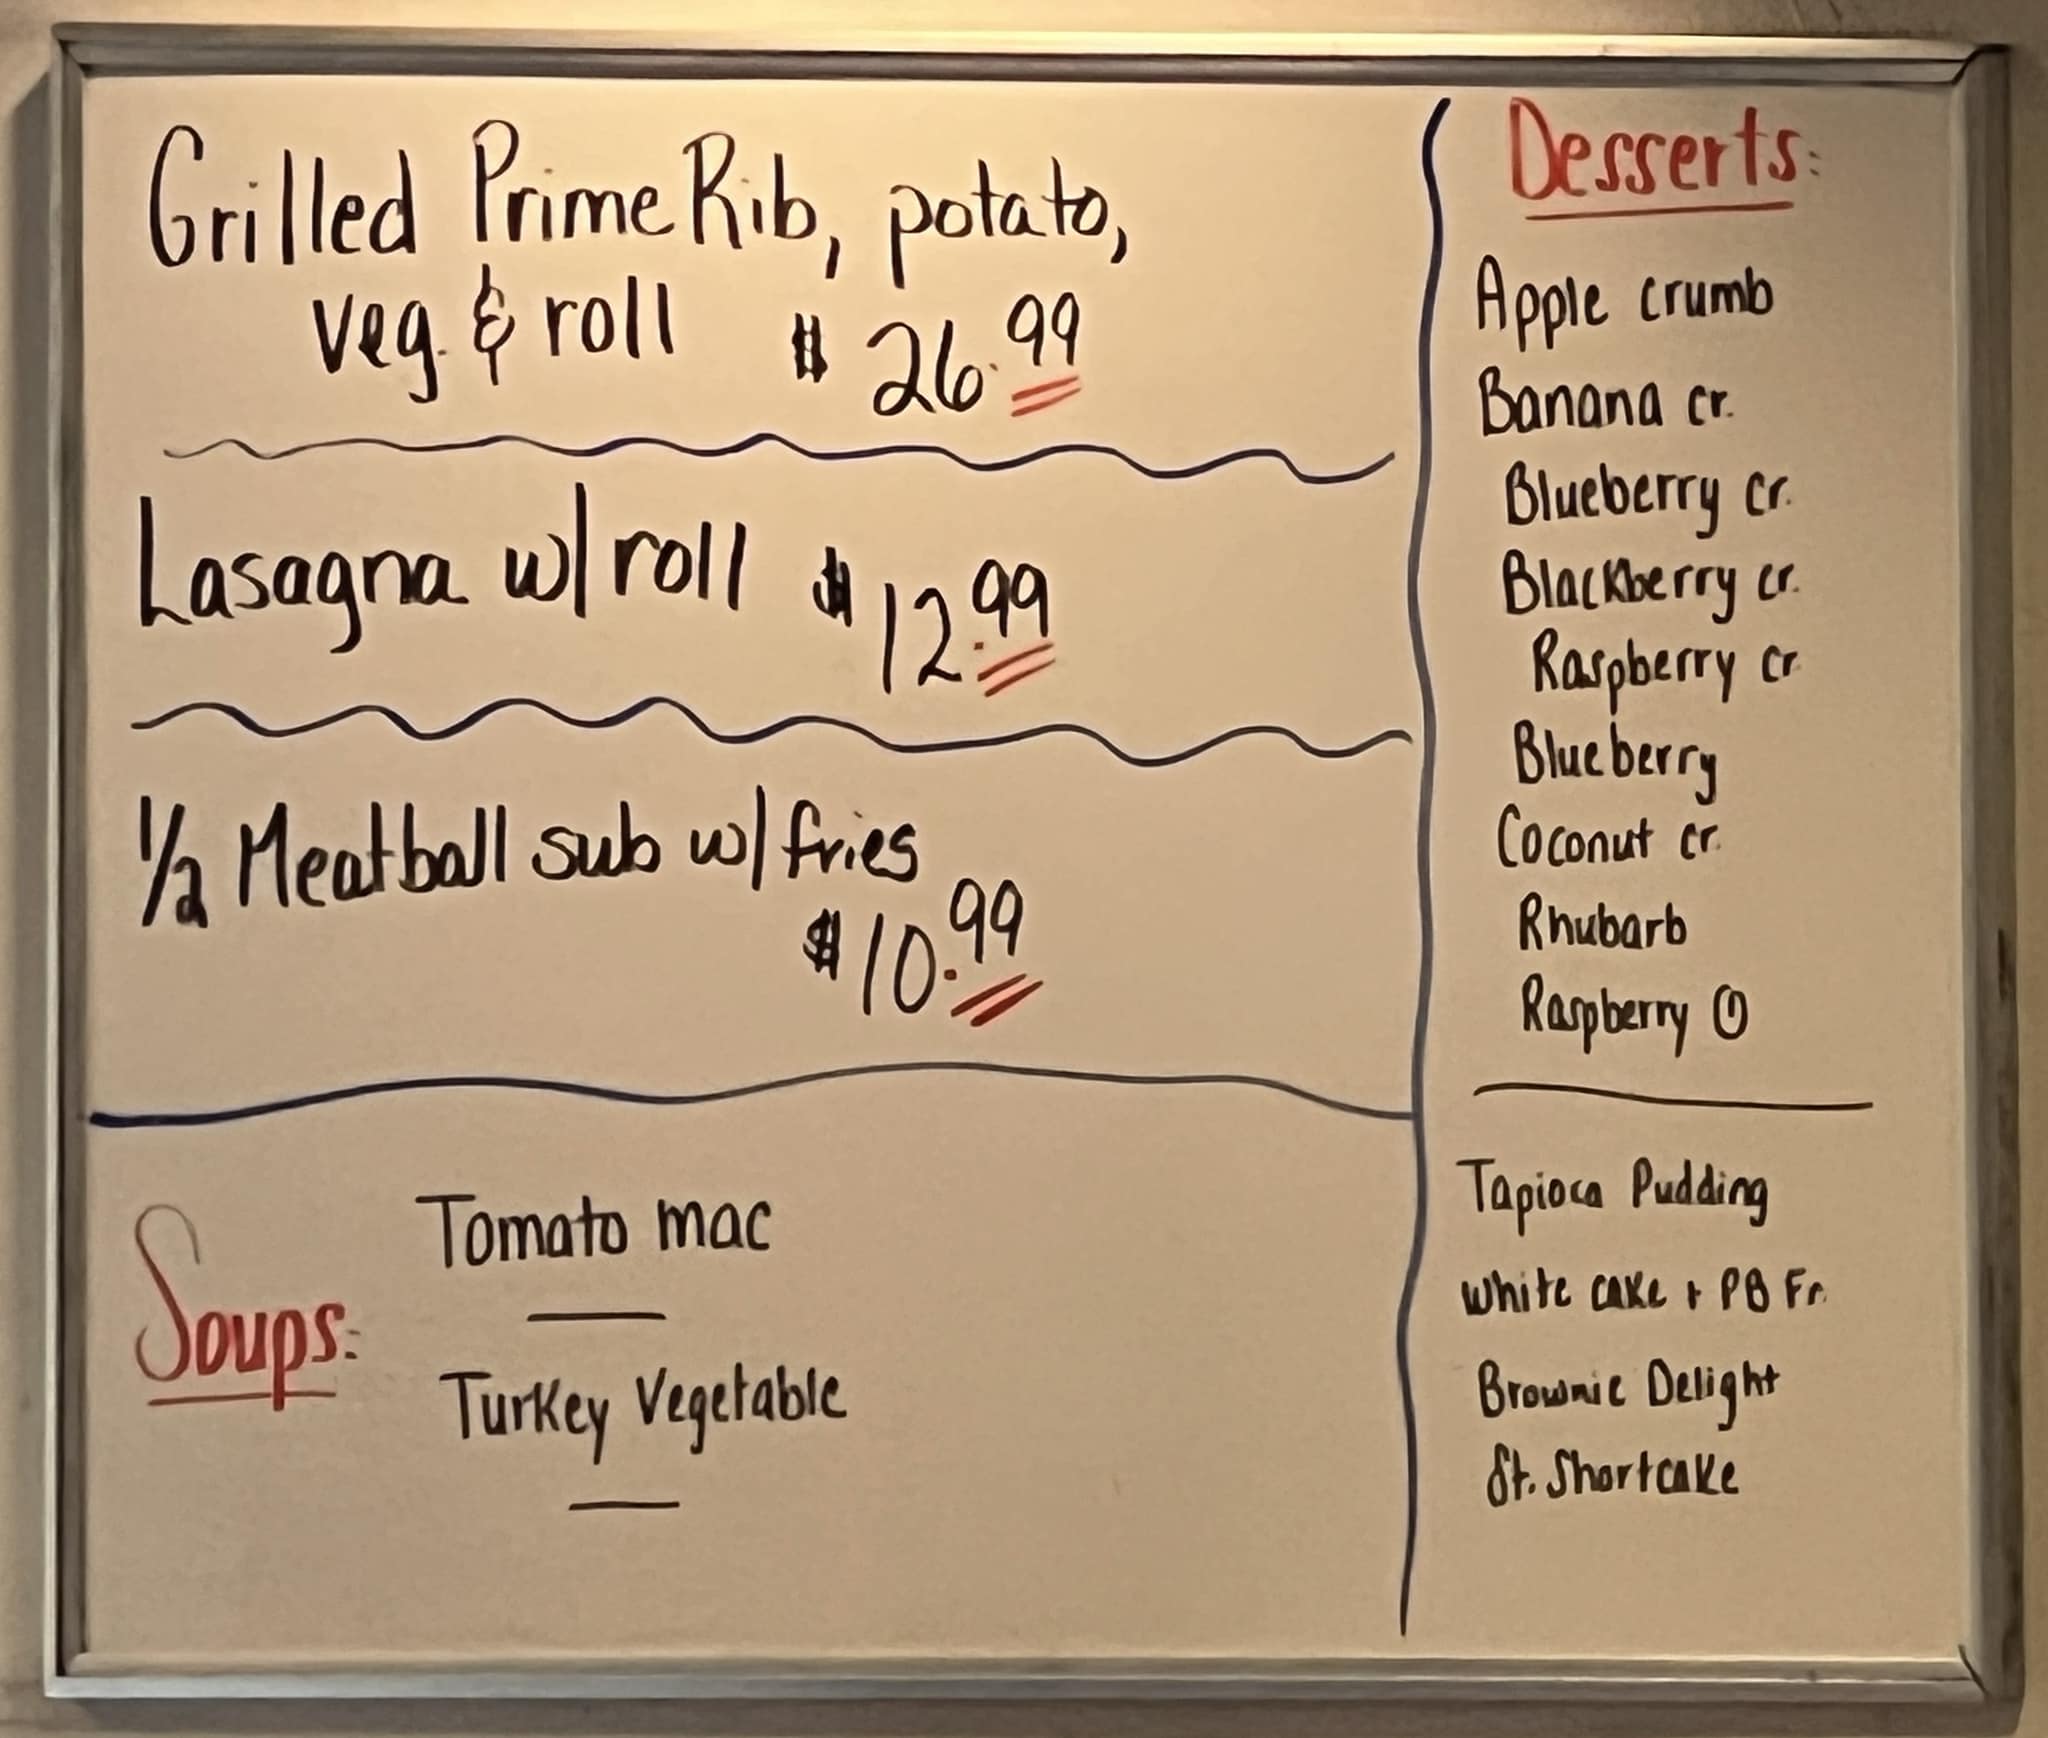 Grilled Prime Rib, potato,
veg. & roll $26.99
Lasagna w/ roll $12.99
1/2 Meatball sub w/ fries
$10.99
Soups:
Tomato mac
Turkey Vegetable
Desserts:
Apple crumb
Banana cr.
Blueberry cr.
Blackberry cr.
Raspberry cr
Blueberry
Coconut cr.
Rhubarb
Raspberry ①
Tapioca Pudding
White cake + PB Fr.
Brownie Delight
St. Shortcake